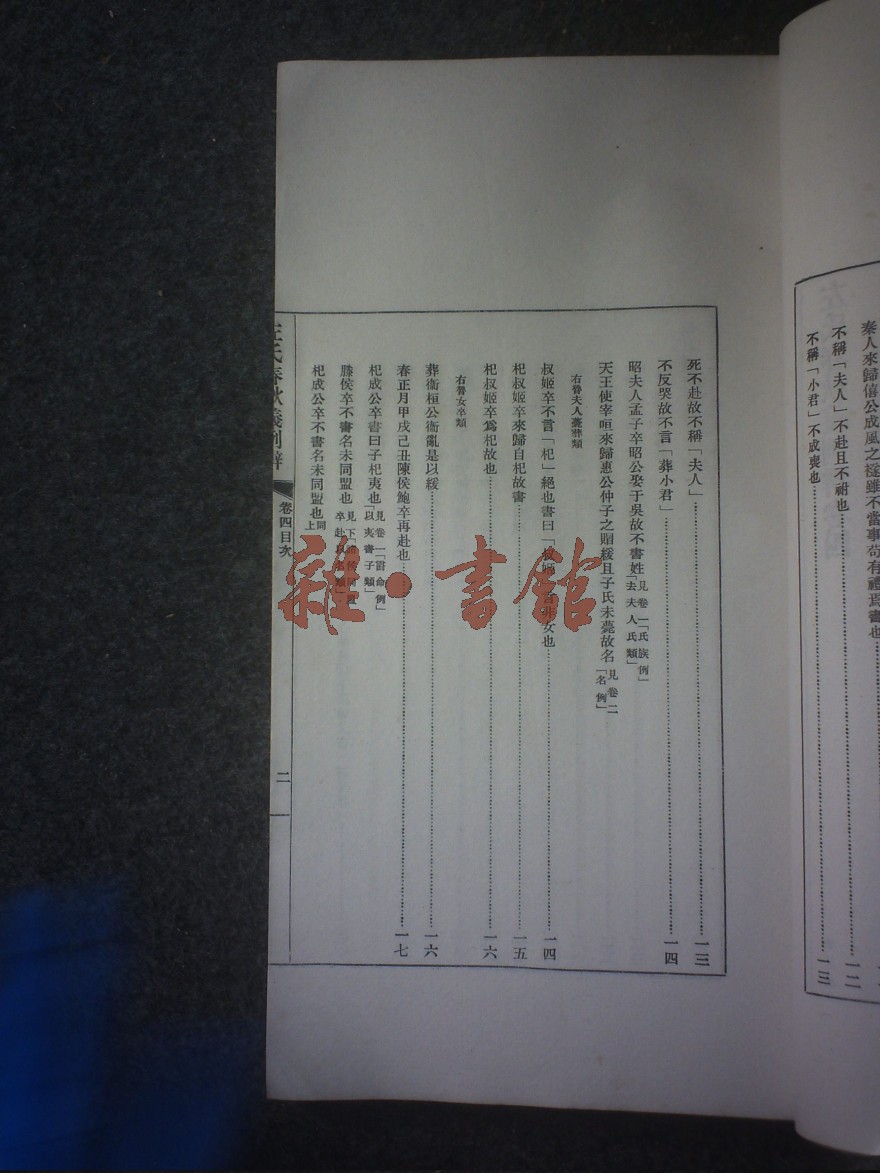 秦人來歸僖公成風之襚雖不當事苟有禮焉書也
不稱「夫人」不赴且不祔也……一二
不稱「小君」不成喪也……一三
死不赴故不稱「夫人」……一三
不反哭故不言「葬小君」……一四
昭夫人孟子卒昭公娶于吳故不書姓見卷一「氏族例」「去夫人氏類」
天王使宰咺來歸惠公仲子之賵緩且子氏未薨故名見卷二「名例」
右魯夫人薨葬類
叔姬卒不言「杞」絕也書曰「叔姬」言非女也……一四
杞叔姬卒來歸自杞故書……一五
杞叔姬卒爲杞故也……一六
右魯女卒類
葬衞桓公衞亂是以緩……一六
春正月甲戌己丑陳侯鮑卒再赴也……一七
杞成公卒書曰子杞夷也見卷一「爵命例」「以夷書子類」
滕侯卒不書名未同盟也見下「諸侯同盟卒赴以名類」
杞成公卒不書名未同盟也同上
左氏春秋義例辨
卷四目次
二
雜·書館